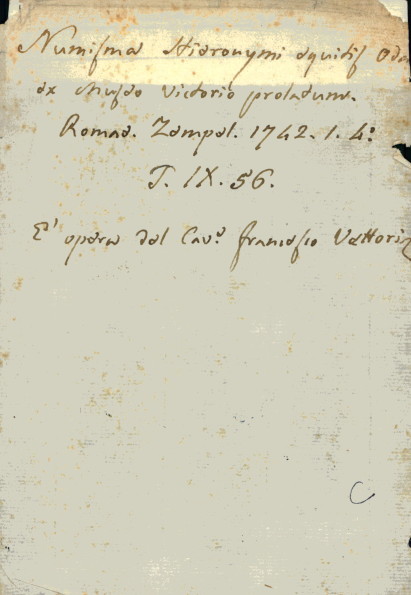 Numisma Hieronymi equitis Od
ex Museo Victorio prolatum.
Romae. Zempel. 1742. 1. 4.º
T. IX. 56.
E' opera del Cav.e francesco Vettori
C